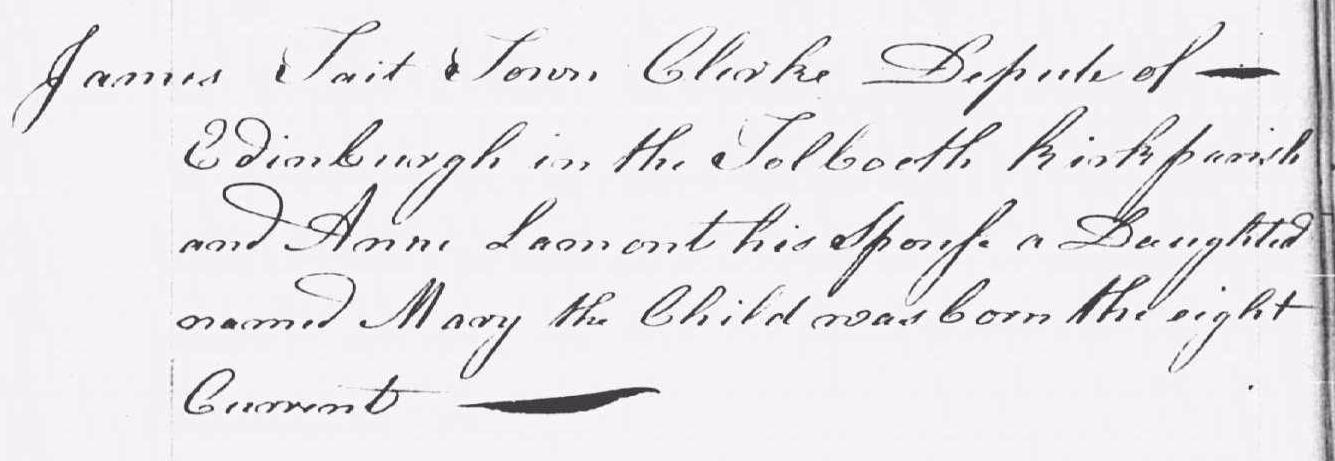 James Tait Town Clerke Depute of —
Edinburgh in the Tolbooth Kirk parish
and Anne Lamont his Spouse a Daughter
named Mary the Child was born the eight
Current —